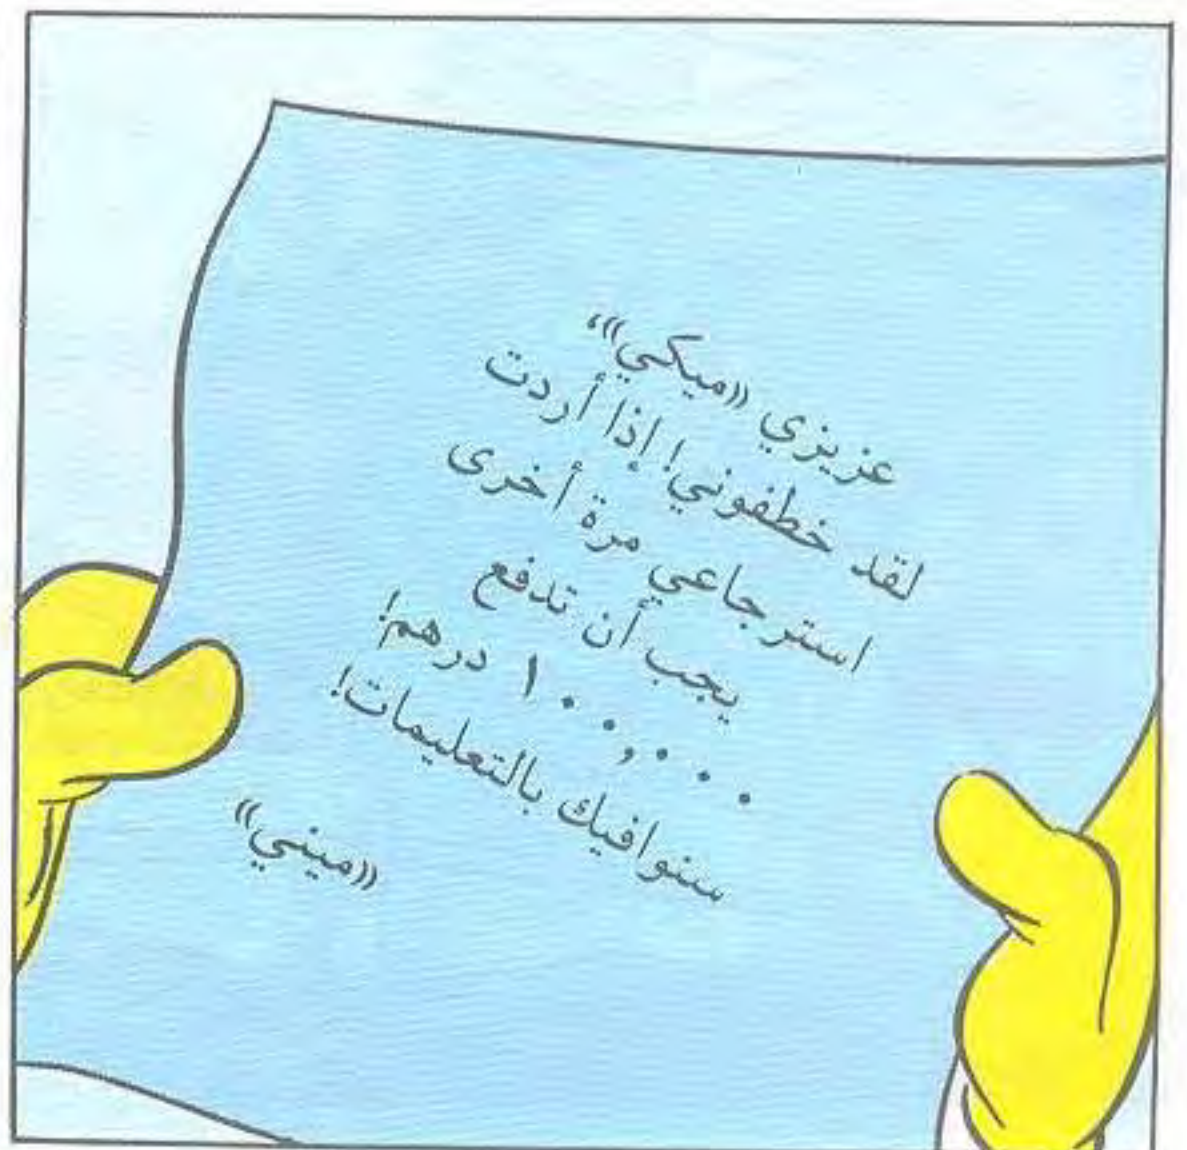 عزيزي «ميكي»،
لقد خطفوني! إذا أردت
استرجاعي مرة أخرى
يجب أن تدفع
١٠٠,٠٠٠ درهم!
سنوافيك بالتعليمات!
«ميني»